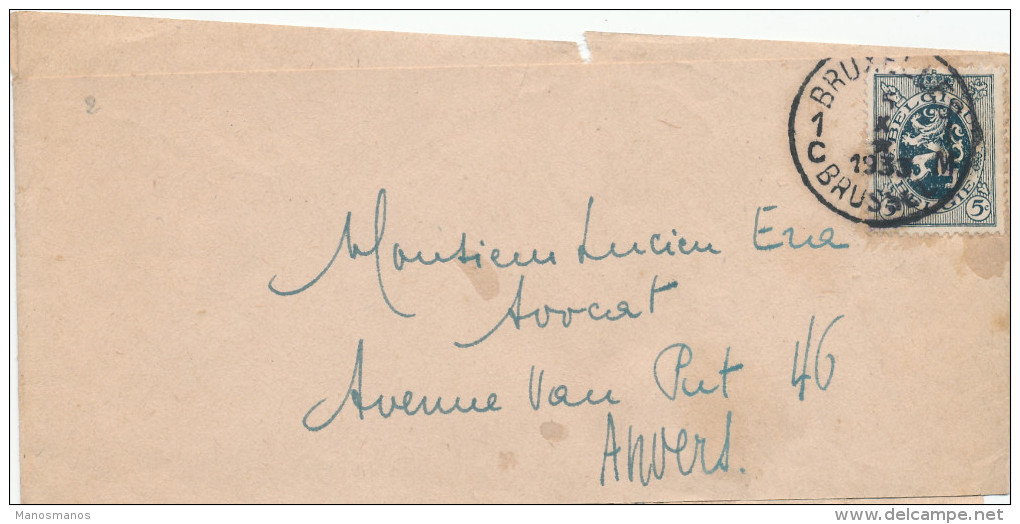 2
BRUX
1
C
1933
BRUSSEL
BELGIQUE
BELGIE
5c
Monsieur Lucien Era
Avocat
Avenue Van Put 46
Anvers.
Manosmanos
www.delcampe.net